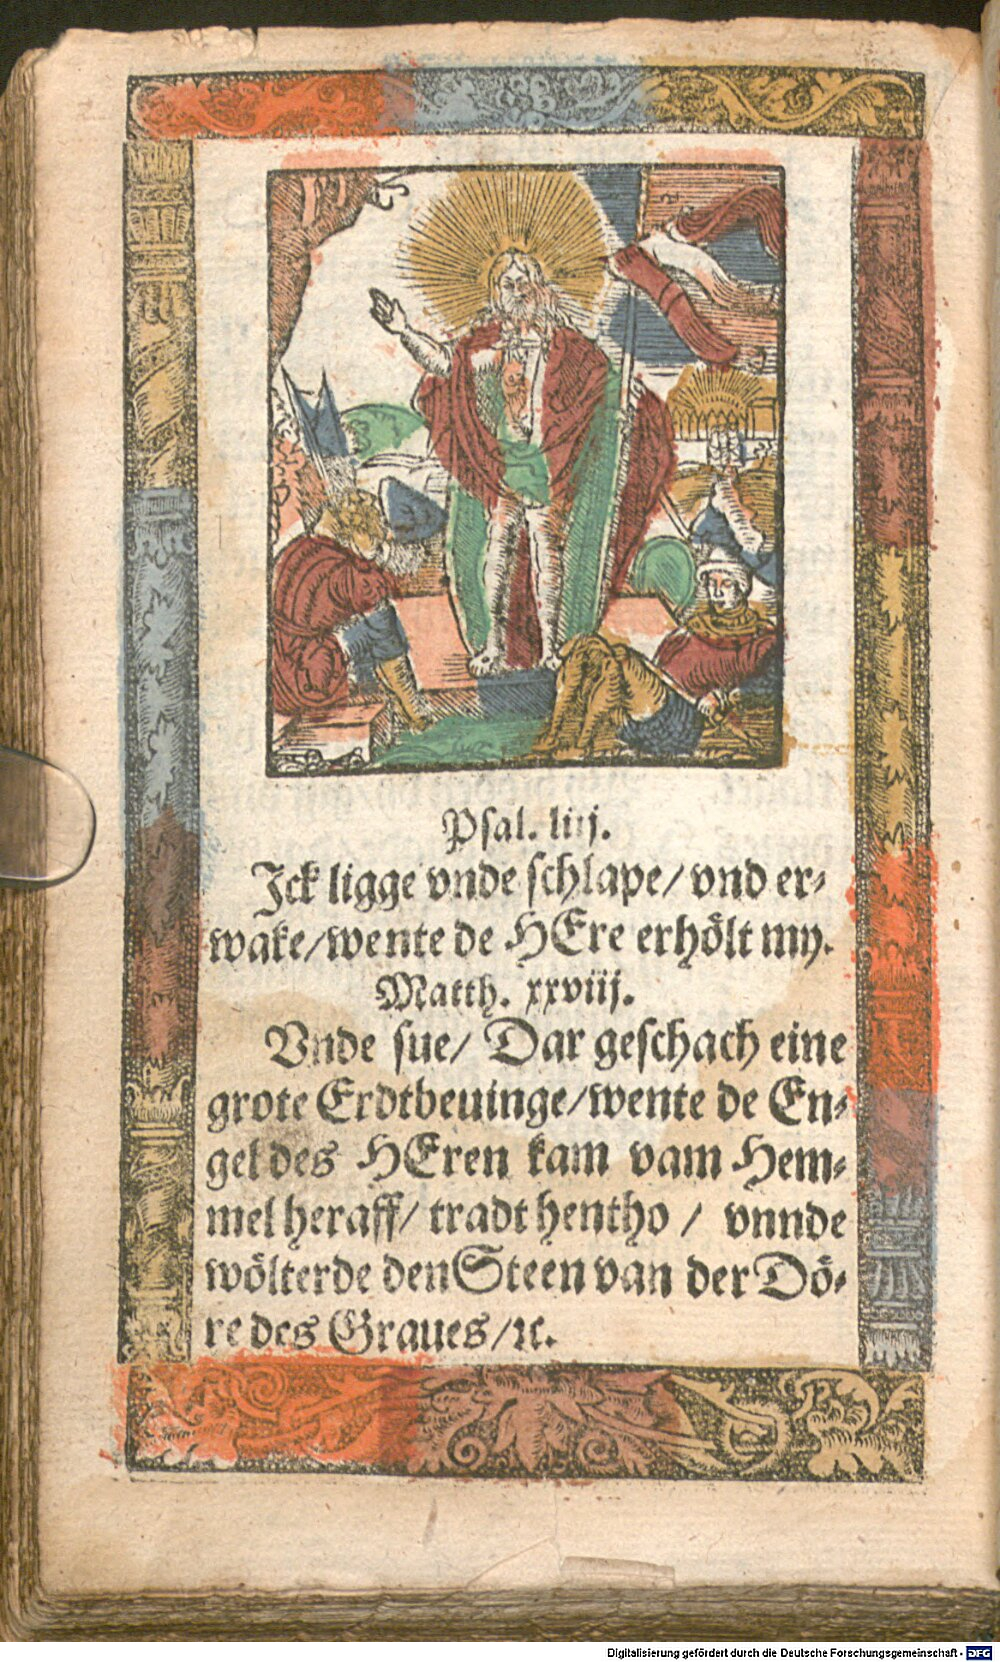 Psal. liij.
Ick ligge vnde schlape/ vnd er⸗
wake/ wente de HEre erhölt my.
Matth. xxviij.
Vnde sue/ Dar geschach eine
grote Erdtbeuinge/ wente de En⸗
gel des HEren kam vam Hem⸗
mel heraff/ tradt hentho / vnnde
wölterde den Steen van der Dö⸗
re des Graues/ ꝛc.
Digitalisierung gefördert durch die Deutsche Forschungsgemeinschaft - DFG